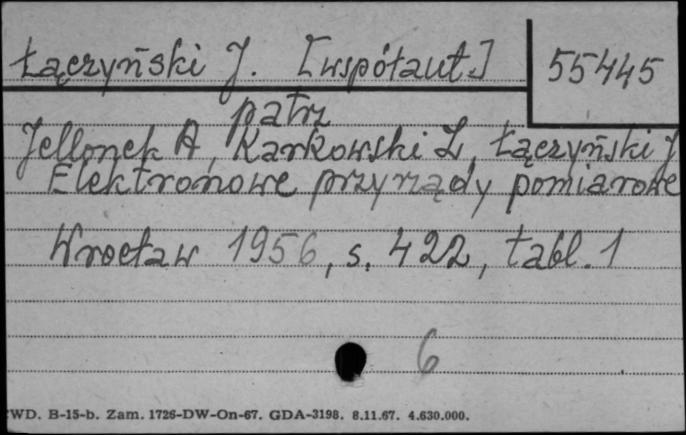 Łączyński J. [współaut.]
55445
patrz
Jellonek A, Karkowski Z, Łączyński J
Elektronowe przyrządy pomiarowe
Wrocław 1956, s. 422, tabl. 1
6
WD. B-15-b. Zam. 1726-DW-On-67. GDA-3198. 8.11.67. 4.630.000.